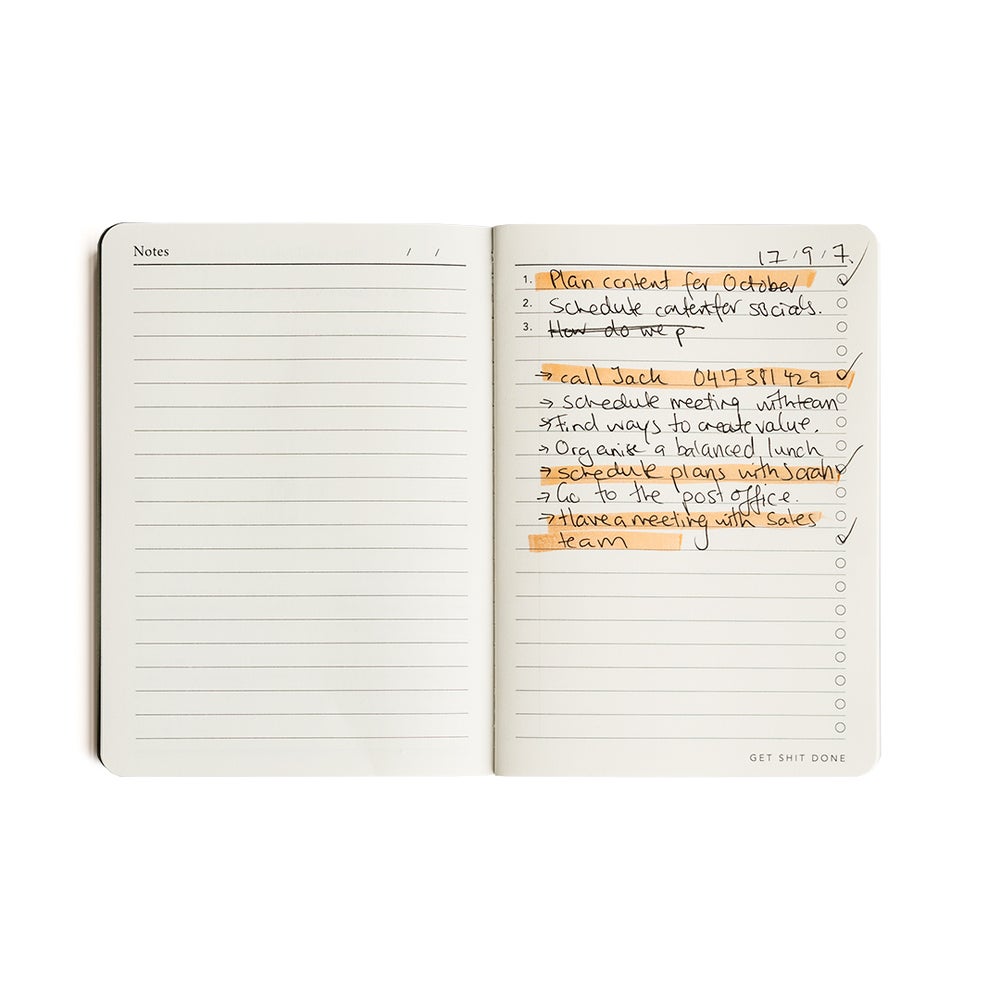 Notes / /
17/9/7.
1. Plan content for October
2. Schedule content for socials.
3. How do we p
→ call Jack 0417381429
→ schedule meeting with team
→ Find ways to create value.
→ Organise a balanced lunch
→ schedule plans with Sarah
→ Go to the post office.
→ Have a meeting with sales
team
GET SHIT DONE